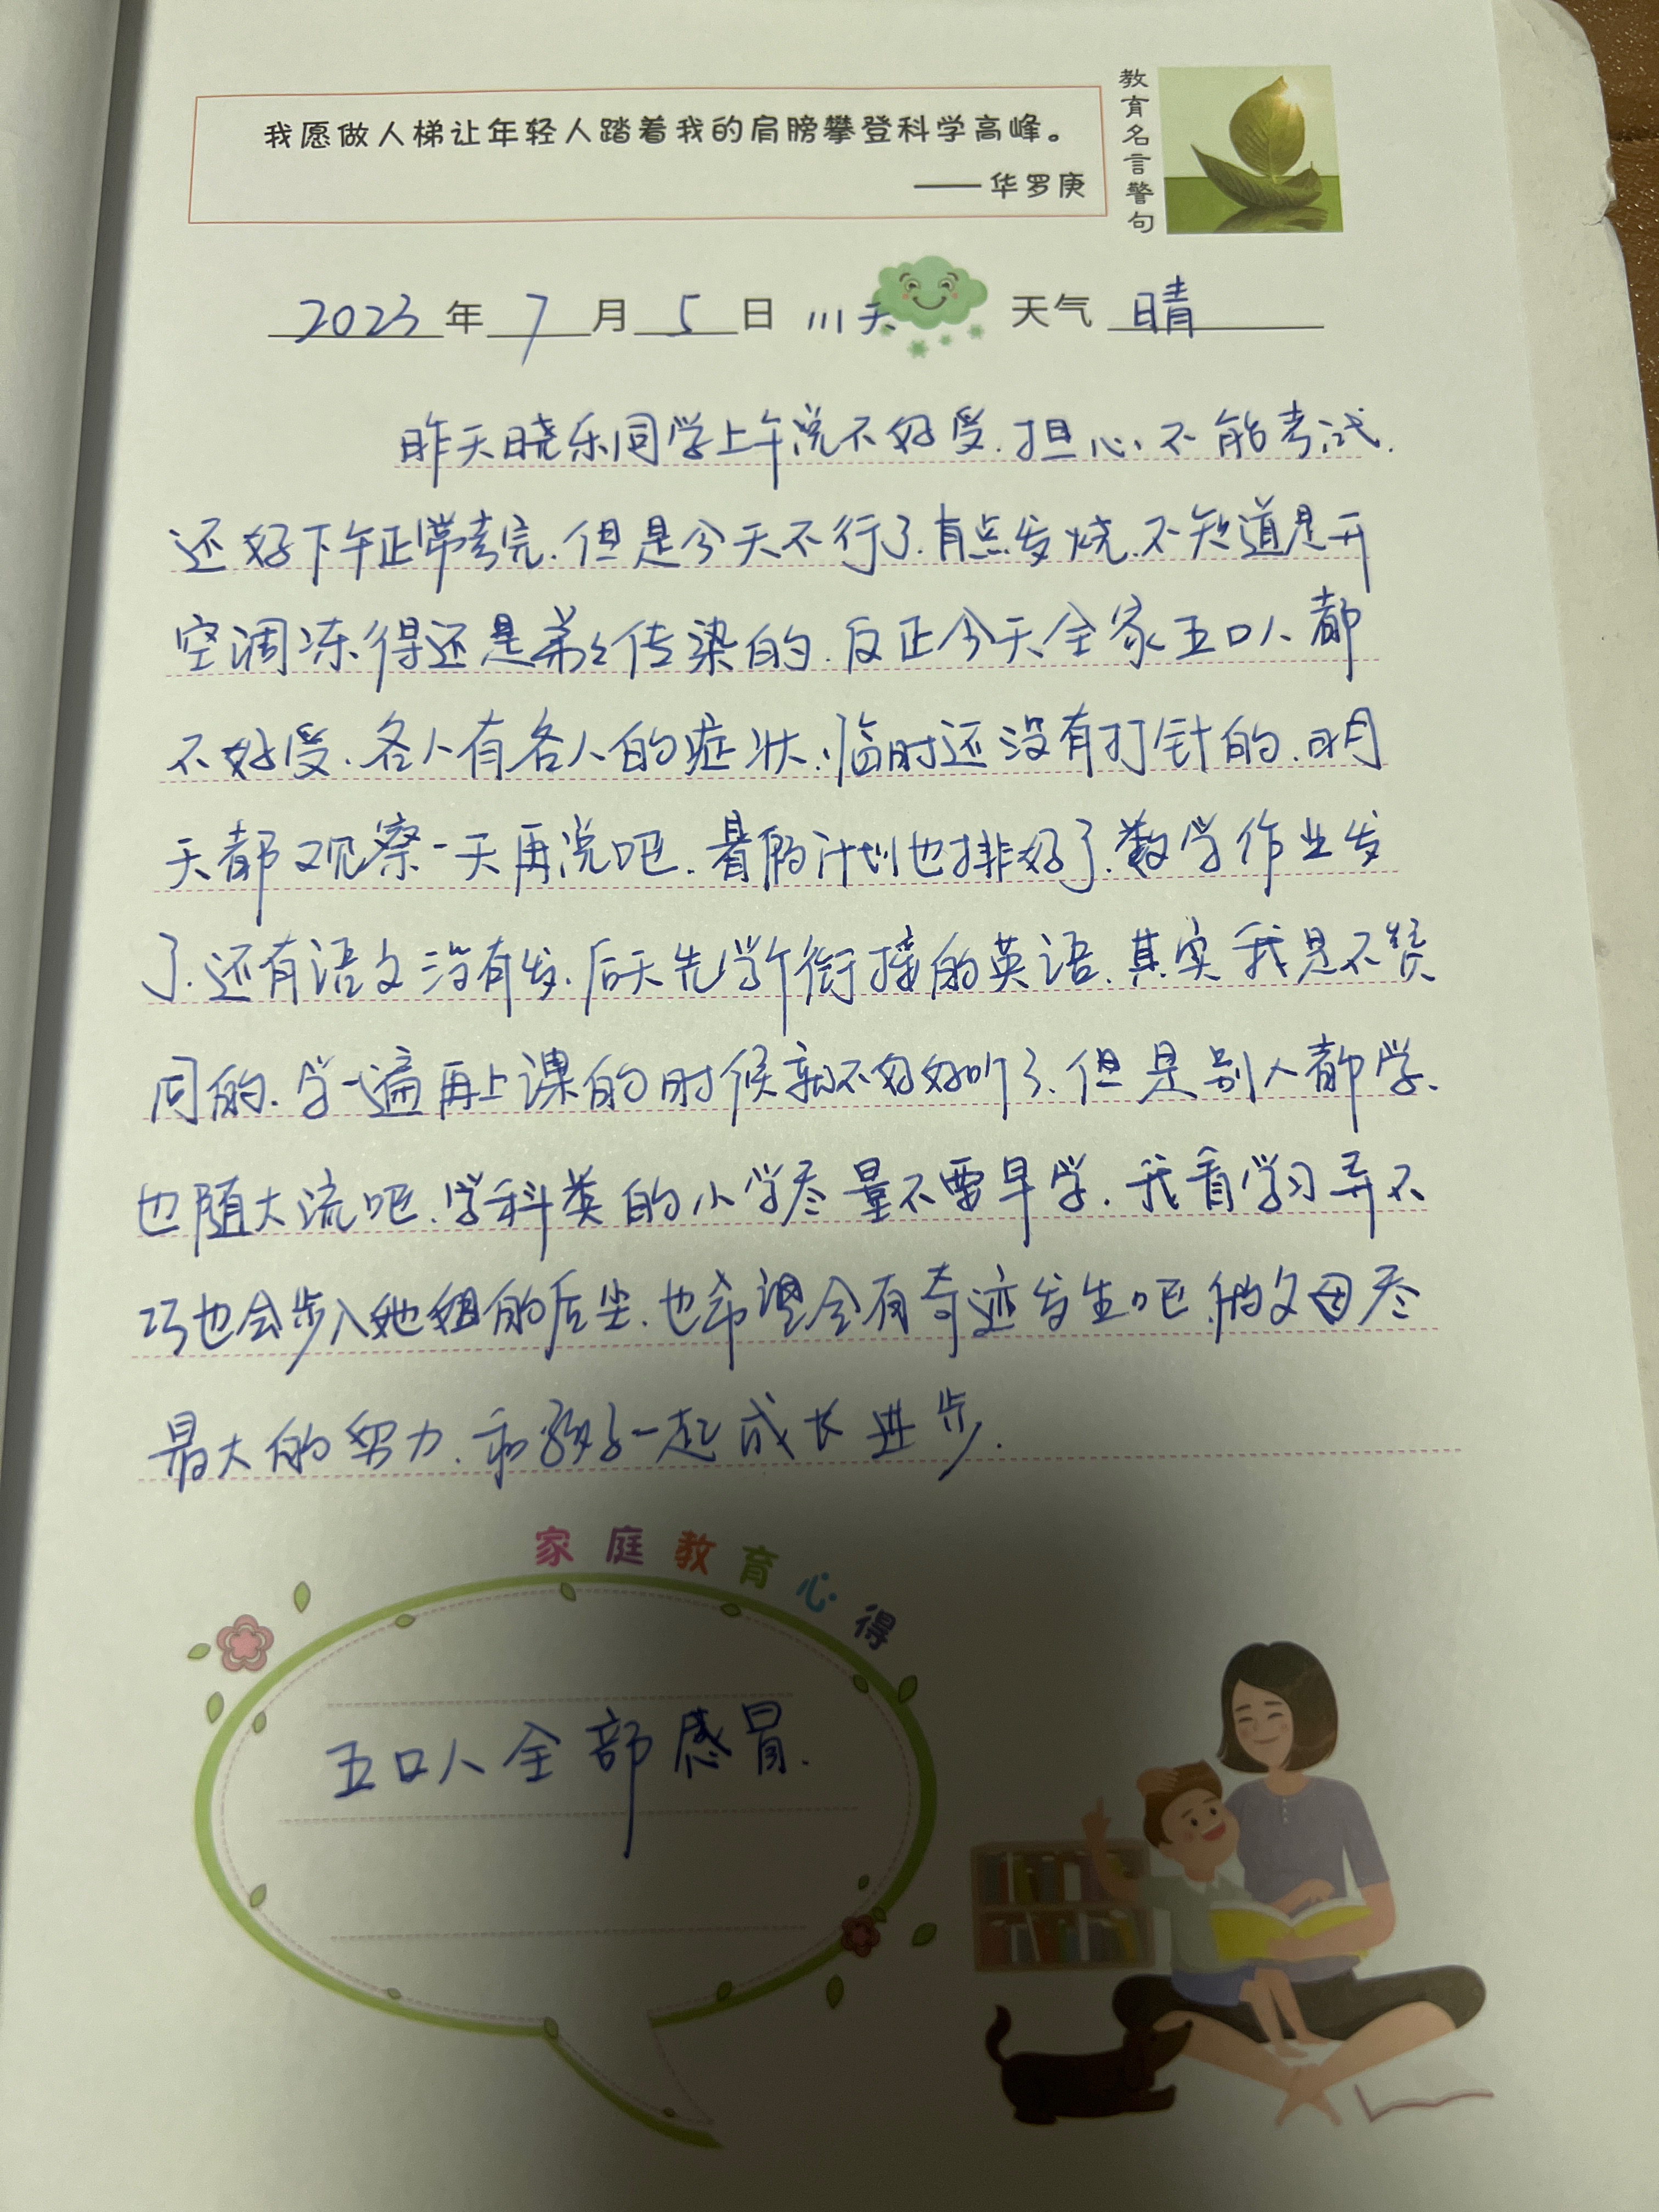 我愿做人梯让年轻人踏着我的肩膀攀登科学高峰。
——华罗庚
教育名言警句
2023年7月5日 111天 天气 晴
昨天晓乐同学上午说不好受.担心不能考试.
还好下午正常考完.但是今天不行了.有点发烧.不知道是开
空调冻得还是弟弟传染的.反正今天全家五口人都
不好受.各人有各人的症状.临时还没有打针的.明
天都观察一天再说吧.暑假计划也排好了.数学作业发
了.还有语文没有发.后天先学衔接的英语.其实我是不赞
同的.学一遍再上课的时候就不好好听了.但是别人都学.
也随大流吧.学科类的小学尽量不要早学.我看学习弄不
巧也会步入她姐的后尘.也希望会有奇迹发生吧.做父母尽
最大的努力.和孩子一起成长进步.
家庭教育心得
五口人全部感冒.